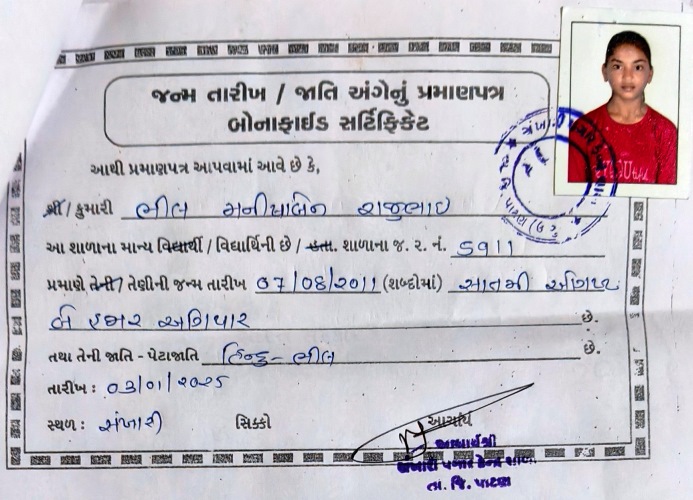 જન્મ તારીખ / જાતિ અંગેનું પ્રમાણપત્ર
બોનાફાઈડ સર્ટિફિકેટ
આથી પ્રમાણપત્ર આપવામાં આવે છે કે,
શ્રી / કુમારી ભીલ મનીષાબેન રાજુભાઈ
આ શાળાના માન્ય વિદ્યાર્થી / વિદ્યાર્થિની છે / હતા. શાળાના જ. ર. નં. ૬૭૧૧
પ્રમાણે તેની / તેણીની જન્મ તારીખ ૦૭/૦૮/૨૦૧૧ (શબ્દોમાં) સાતમી ઓગષ્ટ
બે હજાર અગિયાર છે.
તથા તેની જાતિ - પેટાજાતિ હિન્દુ - ભીલ છે.
તારીખ : ૦૩/૦૧/૨૦૨૫
સ્થળ : સંખારી સિક્કો આચાર્ય
આચાર્યશ્રી
સંખારી પગાર કેન્દ્ર શાળા
તા. જિ. પાટણ